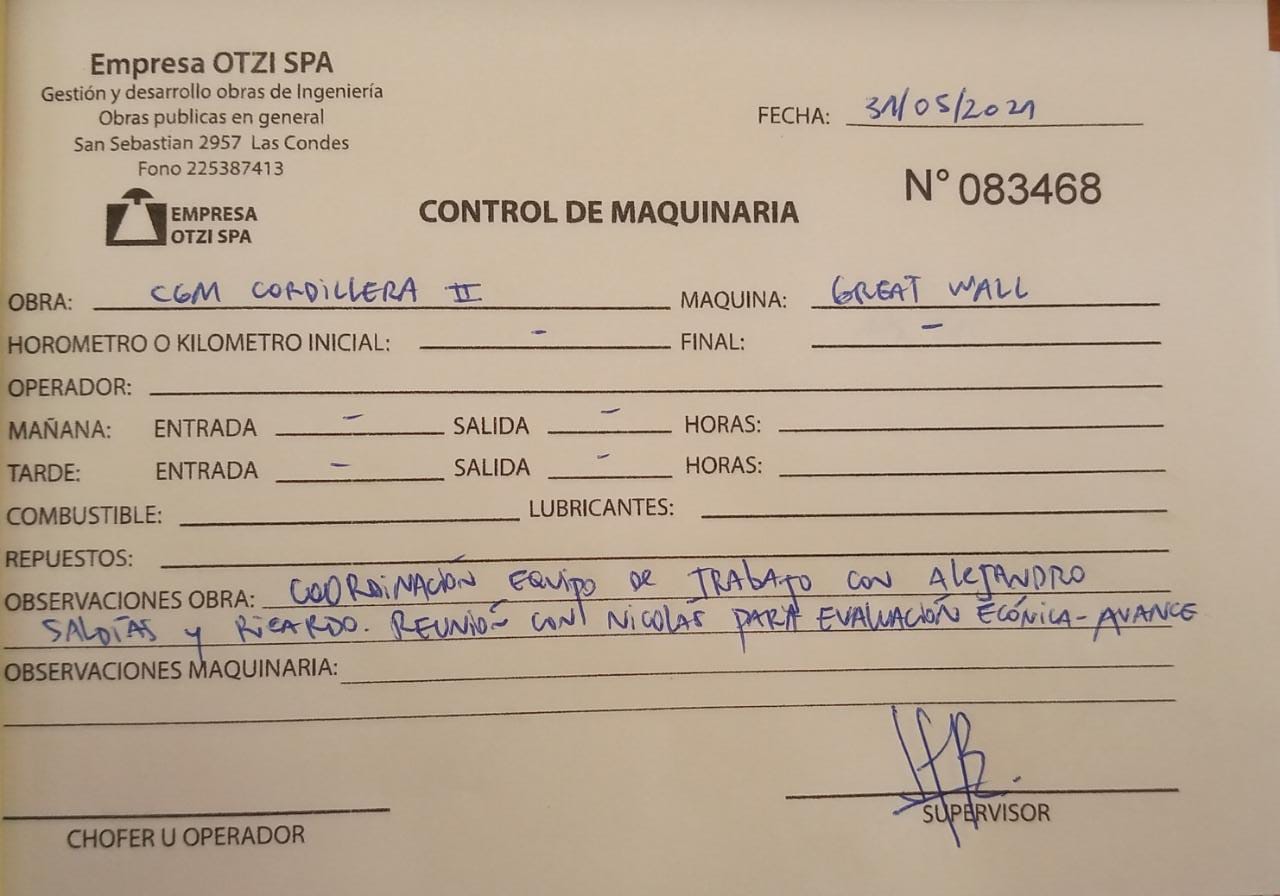 Empresa OTZI SPA
Gestión y desarrollo obras de Ingeniería
Obras publicas en general
San Sebastian 2957 Las Condes
Fono 225387413
EMPRESA
OTZI SPA
FECHA: 31/05/2021
N° 083468
CONTROL DE MAQUINARIA
OBRA: CGM CORDILLERA II MAQUINA: GREAT WALL
HOROMETRO O KILOMETRO INICIAL: - FINAL: -
OPERADOR:
MAÑANA: ENTRADA - SALIDA - HORAS:
TARDE: ENTRADA - SALIDA - HORAS:
COMBUSTIBLE: LUBRICANTES:
REPUESTOS:
OBSERVACIONES OBRA: COORDINACIÓN EQUIPO DE TRABAJO CON ALEJANDRO
SALDÍAS y RICARDO. REUNIÓN CON NICOLÁS PARA EVALUACIÓN ECÓNICA-AVANCE
OBSERVACIONES MAQUINARIA:
CHOFER U OPERADOR
SUPERVISOR